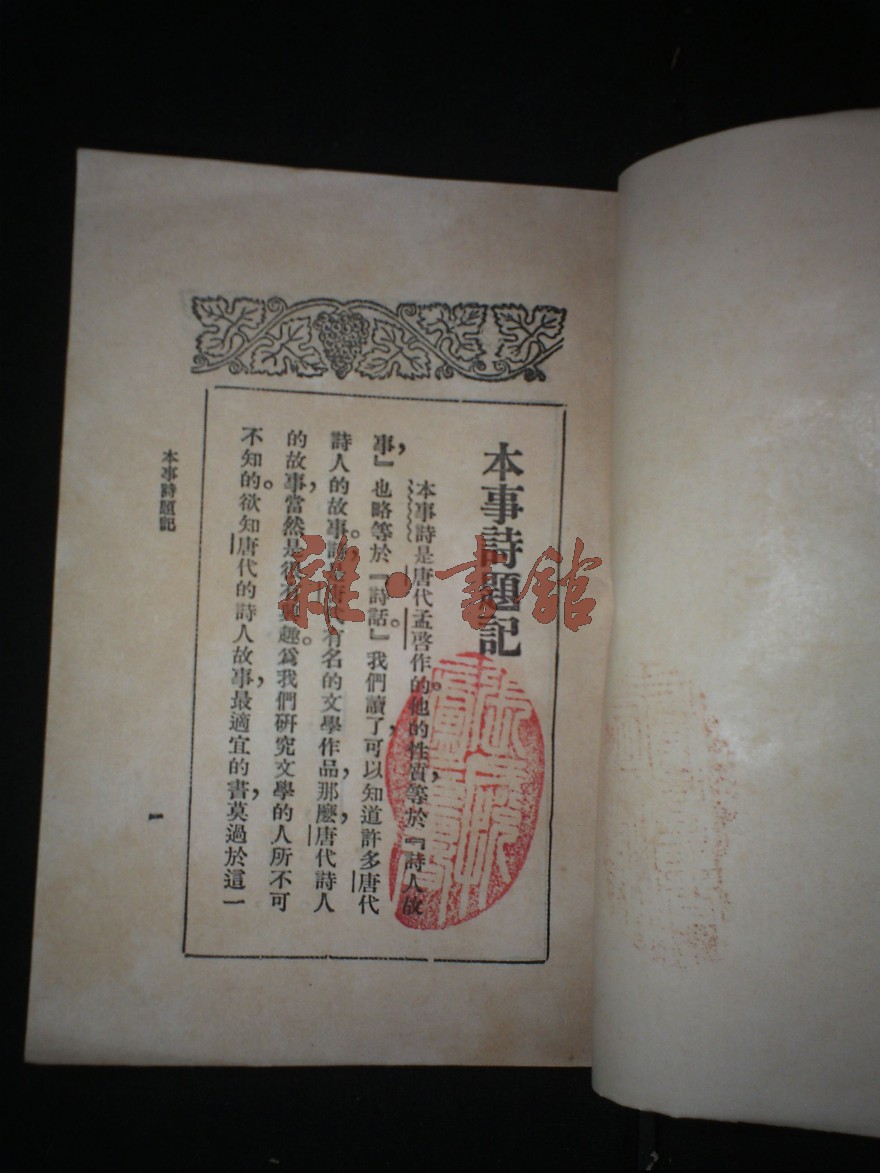 本事詩題記
本事詩是唐代孟啓作的。他的性質，等於『詩人故
事，』也略等於『詩話。』我們讀了，可以知道許多唐代
詩人的故事。有名的文學作品，那麼，唐代詩人
的故事，當然是很有趣。爲我們研究文學的人所不可
不知的。欲知唐代的詩人故事，最適宜的書，莫過於這一
本事詩題記
一
雜·書館